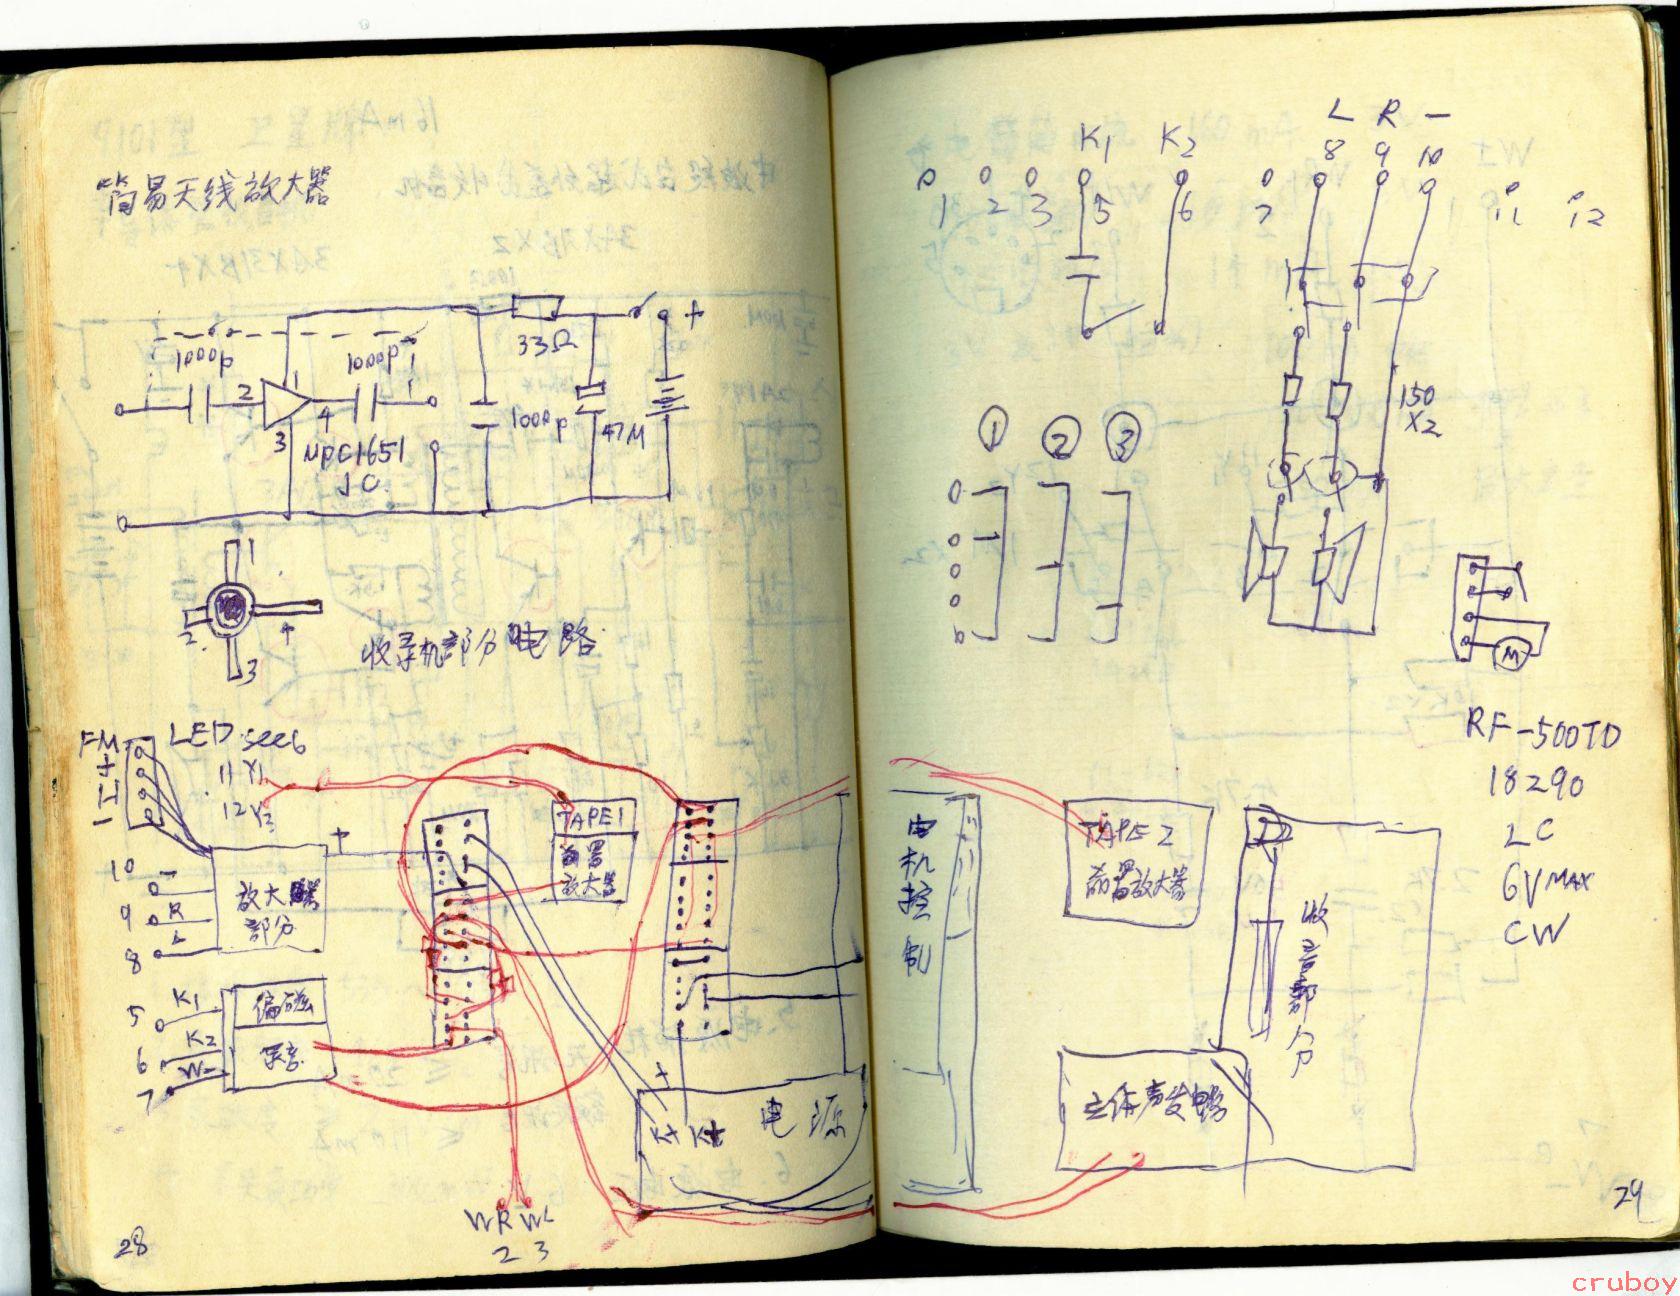 简易天线放大器
1000p
1000p
2
1
4
3
μPC1651
JC
33Ω
+
1000p
47M
1
2
3
4
收录机部分电路
FM
LED
11 Y1
12 Y2
+
10
9
8
-
R
L
放大器
部分
5
6
7
K1
K2
W-
偏磁
录音
TAPE1
前置
放大器
+
K+
电源
WR WL
2 3
28
K1 K2
L R -
8 9 10
1 2 3 5 6 7
11 12
150
X2
① ② ③
M
RF-500TD
18290
2C
6VMAX
CW
电机控制
TAPE2
前置放大器
收音部分
立体声发电路
29
cruboy